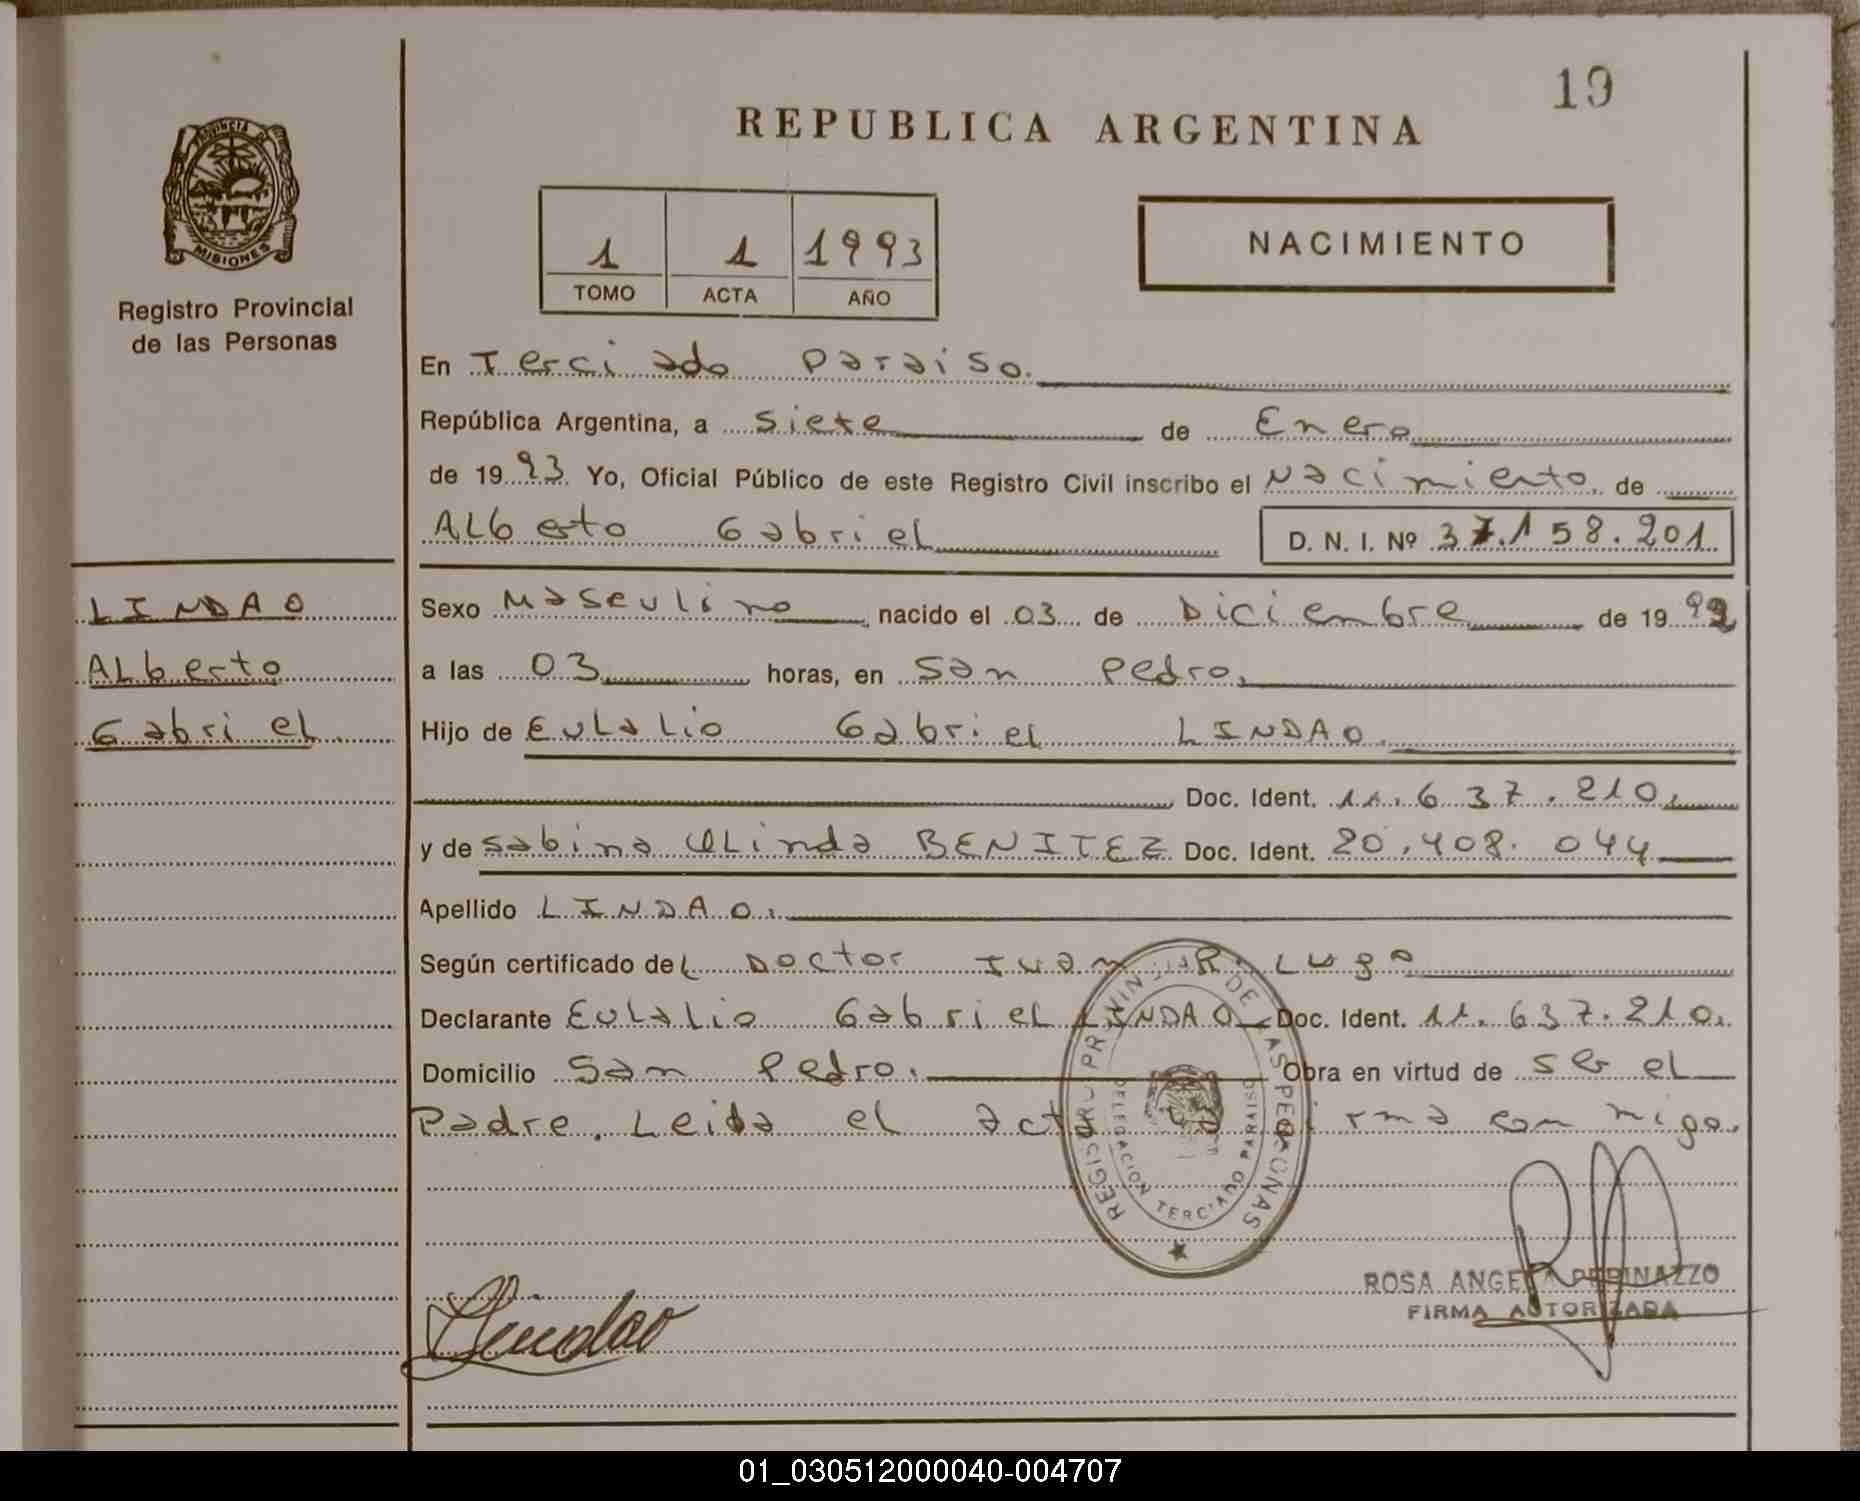 19
REPUBLICA ARGENTINA
PROVINCIA DE
MISIONES
Registro Provincial
de las Personas
1 1 1993
TOMO ACTA AÑO
NACIMIENTO
En Terciado Paraiso.
República Argentina, a Siete de Enero
de 1993. Yo, Oficial Público de este Registro Civil inscribo el Nacimiento. de
ALberto Gabriel D. N. I. Nº 37.158.201
LINDAO
ALberto
Gabriel.
Sexo Masculino, nacido el 03 de Diciembre de 1992
a las 03 horas, en San Pedro.
Hijo de EuLaLio Gabriel LINDAO.
Doc. Ident. 11.637.210.
y de Sabina OLinda BENITEZ Doc. Ident. 20.408.044
Apellido LINDAO.
Según certificado deL Doctor Juan R. Lugo
Declarante EuLaLio Gabriel LINDAO Doc. Ident. 11.637.210.
Domicilio San Pedro. Obra en virtud de ser el
Padre. Leida el acta La firma conmigo.
REGISTRO PROVINCIAL DE LAS PERSONAS
DELEGACION TERCIADO PARAISO
Lindao
ROSA ANGELA PEDINAZZO
FIRMA AUTORIZADA
01_030512000040-004707